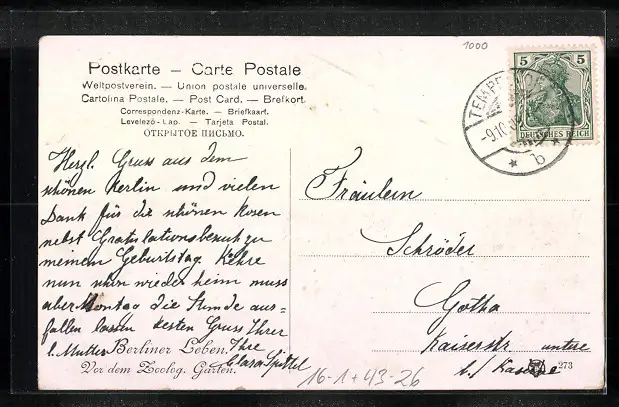 1000
Postkarte – Carte Postale
Weltpostverein. — Union postale universelle.
Cartolina Postale. — Post Card. — Brefkort.
Correspondenz-Karte. — Briefkaart.
Levelező-Lap. — Tarjeta Postal.
ОТКРЫТОЕ ПИСЬМО.
5 5
DEUTSCHES REICH
TEMPE
-9.10.
* b *
Herzl. Gruss aus dem
schönen Berlin und vielen
Dank für die schönen Rosen
nebst Gratulationsbesuch zu
meinem Geburtstag. Kehre
nun schon wieder heim muss
aber Montag die Stunde aus-
fallen lassen besten Gruss Ihrer
l. Mutter Ihre
Clara Spittel
Fräulein
Schröder
Gotha
Kaiserstr. untere
b./
Berliner Leben.
Vor dem Zoolog. Garten.
273
16-1+43-26